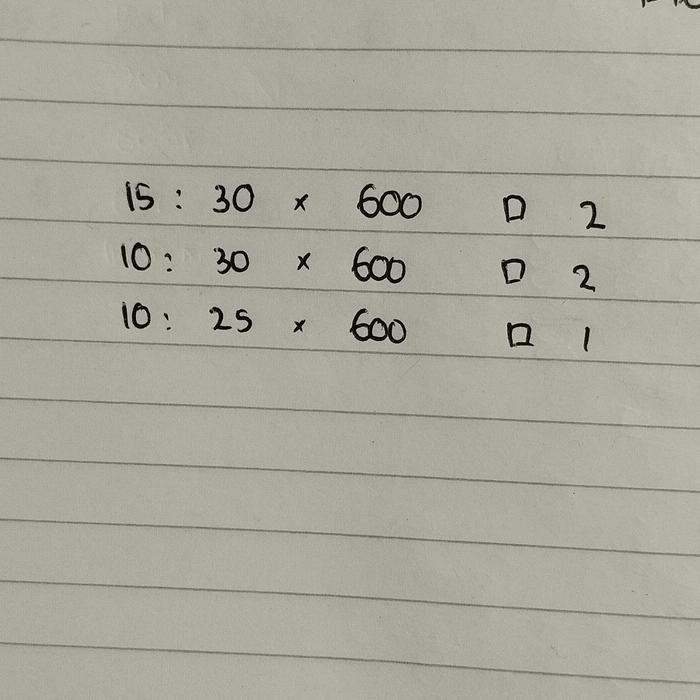 15 : 30 × 600 □ 2
10 : 30 × 600 □ 2
10 : 25 × 600 □ 1